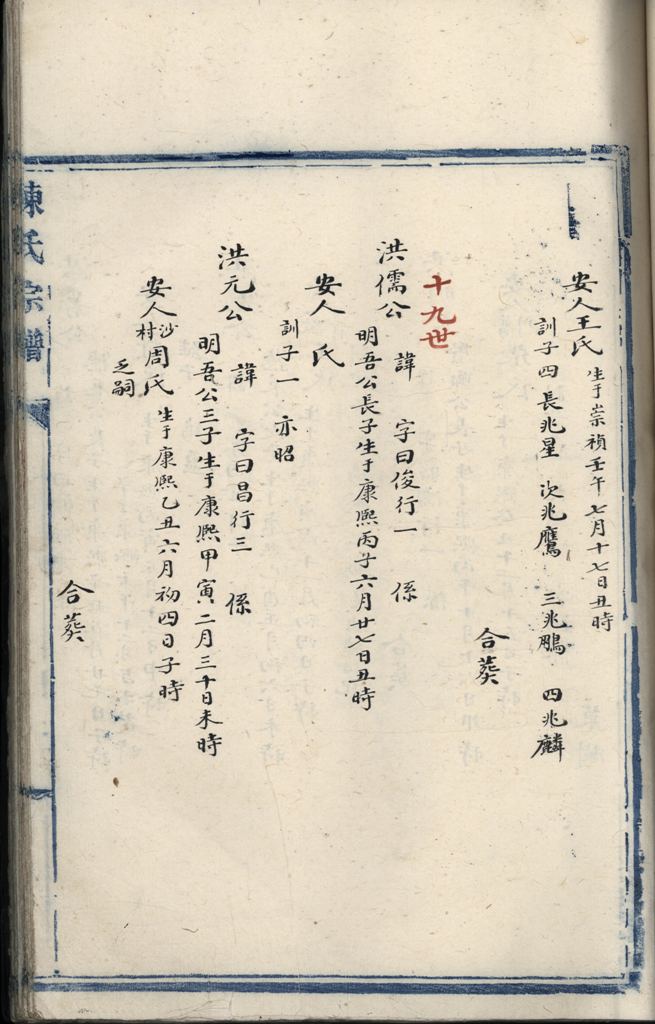 安人王氏 生于崇禎壬午七月十七日丑時
訓子四 長兆星 次兆鷹 三兆鵬 四兆麟
合葬
十九世
洪儒公 諱 字曰俊行一 係
明吾公長子生于康熙丙子六月廿七日丑時
安人 氏
訓子一 亦昭
洪元公 諱 字曰昌行三 係
明吾公三子生于康熙甲寅二月三十日未時
安人沙村周氏 生于康熙乙丑六月初四日子時
乏嗣
合葬
陳氏宗譜